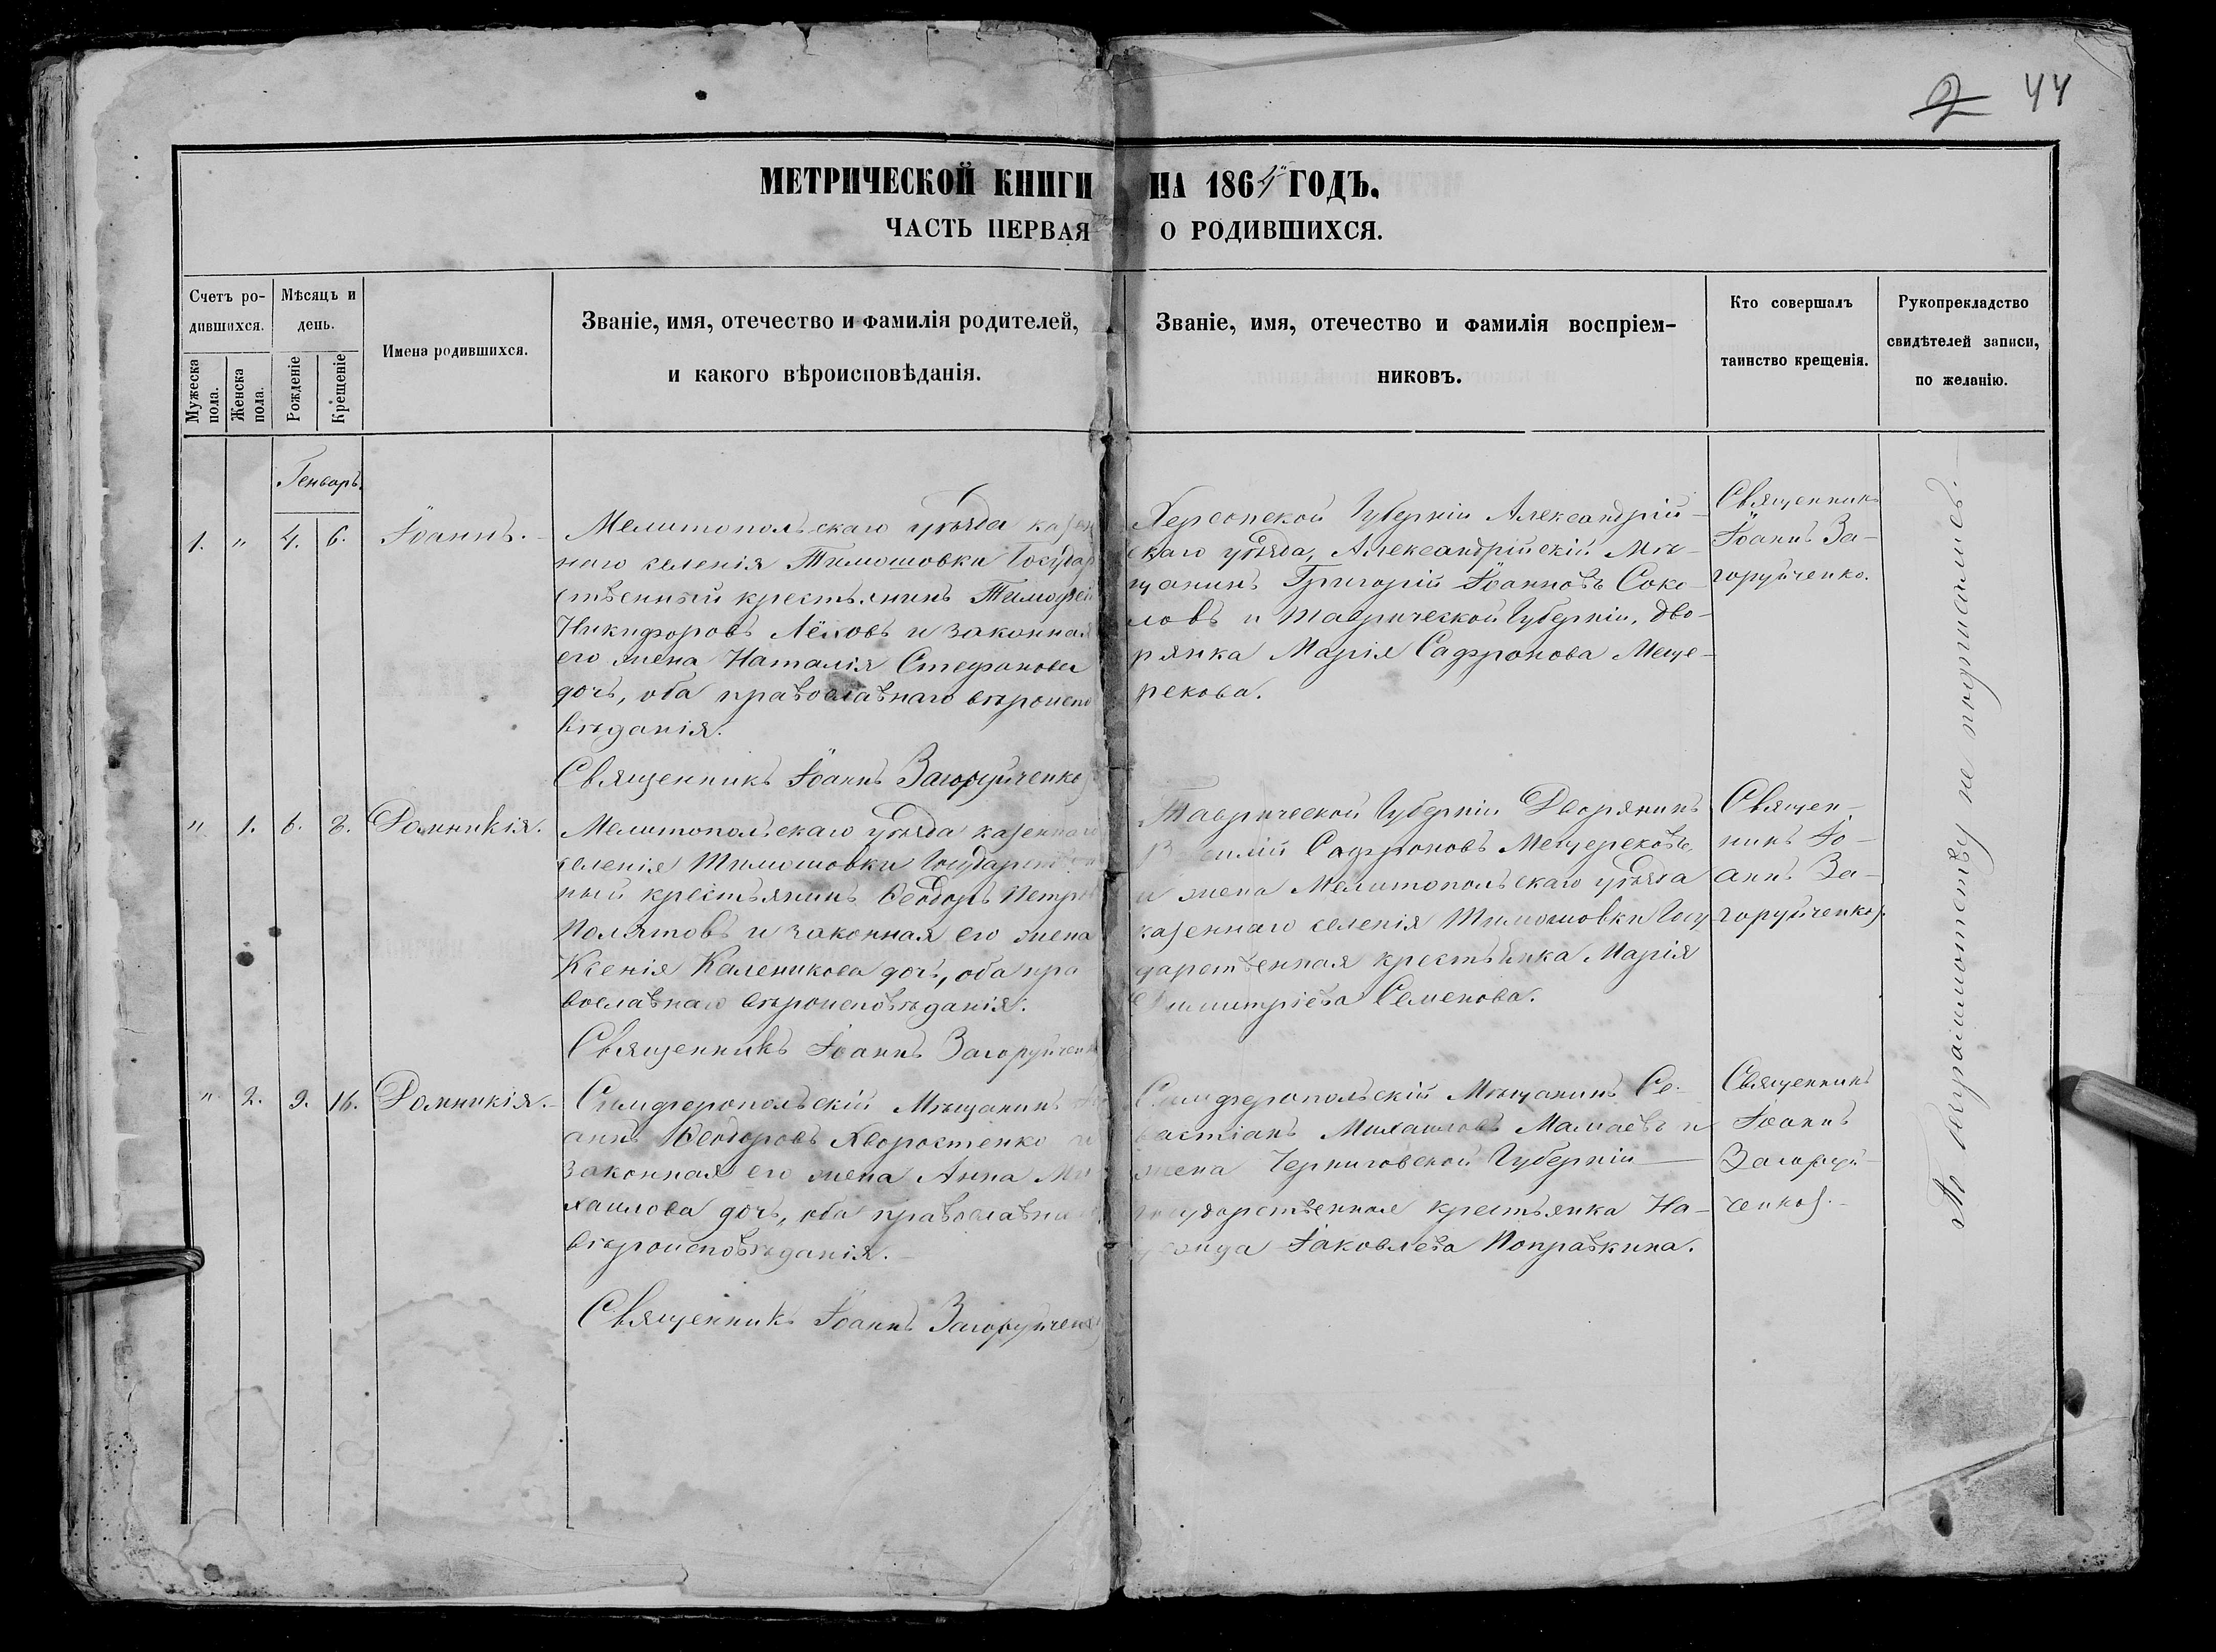 2 44
МЕТРИЧЕСКОЙ КНИГИ НА 1864 ГОДЪ.
ЧАСТЬ ПЕРВАЯ О РОДИВШИХСЯ.
Счетъ ро-
дившихся.
Мужеска
пола.
Женска
пола.
Мѣсяцъ и
день.
Рожденіе
Крещеніе
Имена родившихся.
Званіе, имя, отечество и фамилія родителей,
и какого вѣроисповѣданія.
Званіе, имя, отечество и фамилія воспріем-
никовъ.
Кто совершалъ
таинство крещенія.
Рукоприкладство
свидѣтелей записи,
по желанію.
Генварь.
1. " 4. 6. Іоаннъ.
Мелитопольскаго уѣзда казен
наго селенія Тимошовки Государ
ственный крестьянинъ Тимофей
Никифоровъ Лёховъ и законная
его жена Наталія Стефанова
дочь, оба православнаго вѣроиспо
вѣданія.
Священникъ Іоаннъ Загоруйченко
Херсонской Губерніи Александрій-
скаго уѣзда, Александрійскій Мѣ-
щанинъ Григорій Іоанновъ Соко-
ловъ и Таврической Губерніи, дво-
рянка Марія Сафронова Меще-
рекова.
Священникъ
Іоаннъ За-
горуйченко.
" 1. 6. 8. Домникія.
Мелитопольскаго уѣзда казеннаго
селенія Тимошовки Государствен
ный крестьянинъ Ѳеодоръ Петров
Полятовъ и законная его жена
Ксенія Каленикова дочь, оба пра
вославнаго вѣроисповѣданія.
Священникъ Іоаннъ Загоруйченк
Таврической Губерніи Дворянинъ
Василій Сафроновъ Мещерековъ
и жена Мелитопольскаго уѣзда
казеннаго селенія Тимошовки Госу
дарственная крестьянка Марія
Димитріева Семенова.
Священ-
никъ Іо-
аннъ За-
горуйченко.
" 2. 9. 16. Домникія.
Симферопольскій Мѣщанинъ Іо
аннъ Ѳеодоровъ Хворостенко и
законная его жена Анна Ми
хаилова дочь, оба православна
вѣроисповѣданія.
Священникъ Іоаннъ Загоруйченк
Симферопольскій Мѣщанинъ Се-
вастіанъ Михаиловъ Мамаевъ и
жена Черниговской Губерніи
государственная крестьянка На-
Іаковлева Поправкина.
Священникъ
Іоаннъ
Загоруй-
ченко.
По неграмотству не подписались.